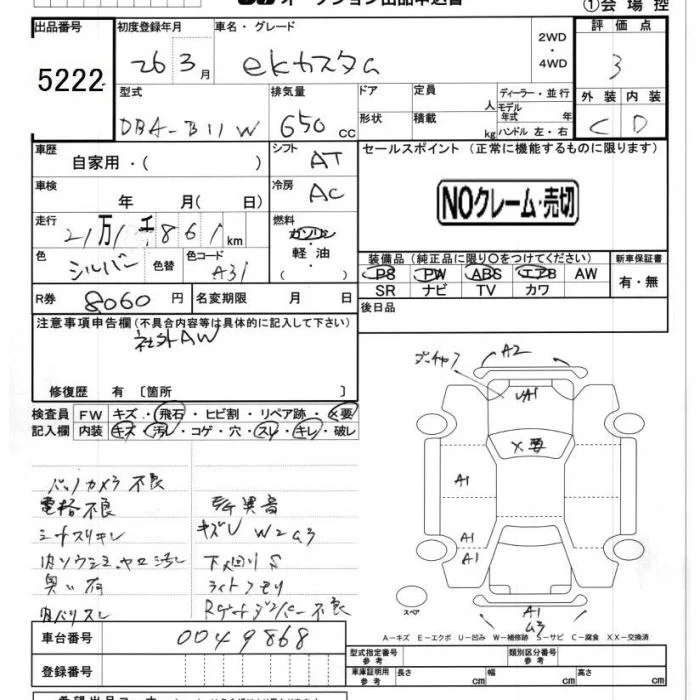 オークション出品申込書
①会場控
出品番号 初度登録年月 車名・グレード 評価点
5222 26年3月 ekカスタム 2WD・4WD 3
型式 排気量 ドア 定員 人 ディーラー・並行 外装 内装
DBA-B11W 650cc 形状 積載 kg モデル年式 年 ハンドル 左・右 C D
車歴 自家用・( ) シフト AT セールスポイント(正常に機能するものに限ります)
車検 年 月( 日) 冷房 AC NOクレーム・売切
走行 21万1千861km 燃料 ガソリン・軽油・( )
色 シルバー 色替 色コード A31 装備品(純正品に限り○をつけてください) 新車保証書
PS PW ABS エアB AW 有・無
SR ナビ TV カワ
R券 8060円 名変期限 月 日 後日品
注意事項申告欄(不具合内容等は具体的に記入して下さい)
社外AW
修復歴 有〔箇所 〕
検査員 FW キズ・飛石・ヒビ割・リペア跡・×要
記入欄 内装 キズ・汚レ・コゲ・穴・スレ・キレ・破レ
バックカメラ不良
電格不良 異音
シートスリキレ キズU W2 G3
汚レ 下廻りS
臭い有 ライトクモリ
内バリスレ 不良
車台番号 0049868
登録番号
A2
UA1
X要
A1
A1
A1
A1
G3
スペア
A-キズ E-エクボ U-凹み W-補修跡 S-サビ C-腐食 XX-交換済
型式指定番号 参考 類別区分番号 参考
車庫証明用 参考 長さ cm 幅 cm 高さ cm